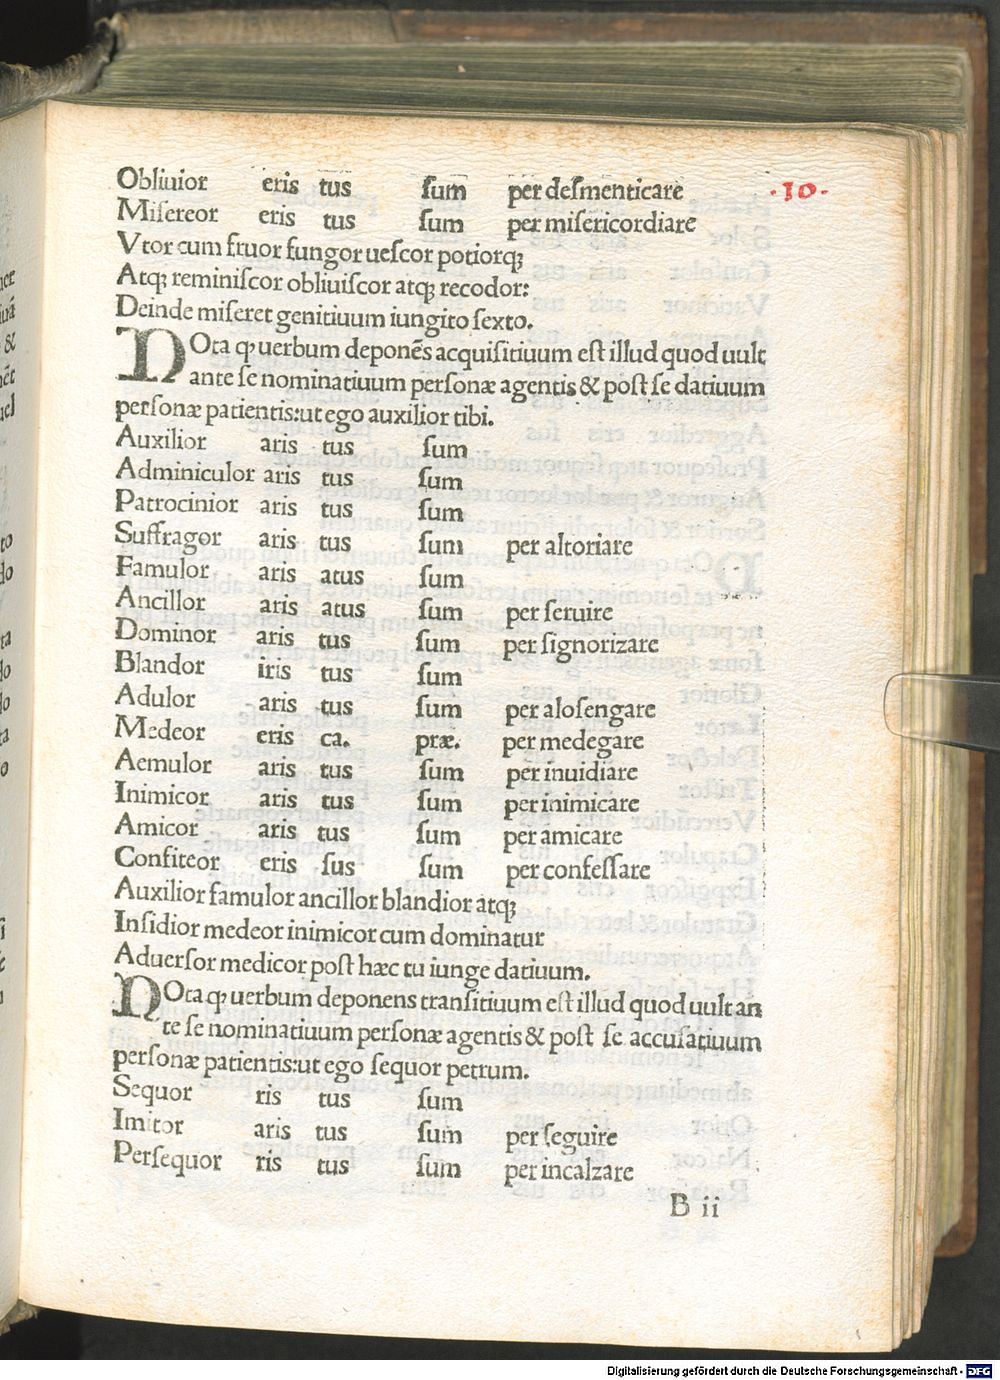 Obliuior eris tus ſum per deſmenticare ·10·
Miſereor eris tus ſum per miſericordiare
Vtor cum fruor fungor ueſcor potiorqꝫ
Atqꝫ reminiſcor obliuiſcor atqꝫ recodor:
Deinde miſeret genitiuum iungito ſexto.
NOta ꝙ uerbum deponēs acquiſitiuum eſt illud quod uult
ante ſe nominatiuum perſonæ agentis & poſt ſe datiuum
perſonæ patientis:ut ego auxilior tibi.
Auxilior aris tus ſum
Adminiculor aris tus ſum
Patrocinior aris tus ſum
Suffragor aris tus ſum per altoriare
Famulor aris atus ſum
Ancillor aris atus ſum per ſeruire
Dominor aris tus ſum per ſignorizare
Blandor iris tus ſum
Adulor aris tus ſum per aloſengare
Medeor eris ca. præ. per medegare
Aemulor aris tus ſum per inuidiare
Inimicor aris tus ſum per inimicare
Amicor aris tus ſum per amicare
Confiteor eris ſus ſum per confeſſare
Auxilior famulor ancillor blandior atqꝫ
Inſidior medeor inimicor cum dominatur
Aduerſor medicor poſt hæc tu iunge datiuum.
NOta ꝙ uerbum deponens tranſitiuum eſt illud quod uult an
te ſe nominatiuum perſonæ agentis & poſt ſe accuſatiuum
perſonæ patientis:ut ego ſequor petrum.
Sequor ris tus ſum
Imitor aris tus ſum per ſeguire
Perſequor ris tus ſum per incalzare
B ii
Digitalisierung gefördert durch die Deutsche Forschungsgemeinschaft - DFG